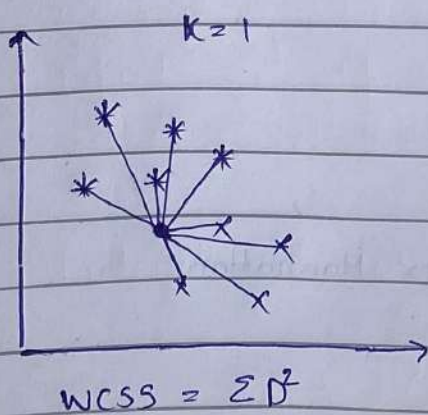 K = 1
WCSS = ΣD²